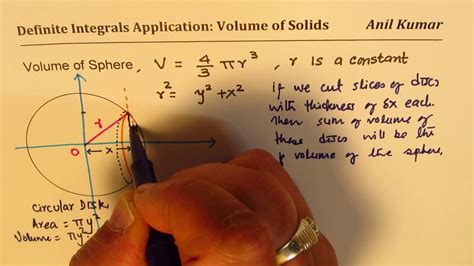 Definite Integrals Application: Volume of Solids Anil Kumar
Volume of Sphere, V = 4/3 πr³, r is a constant
r² = y² + x²
if we cut slices of discs
with thickness of δx each.
Then sum of volume of
these discs will be the
volume of the sphere.
r
O
x
Circular Disk
Area = πy²
Volume = πy²